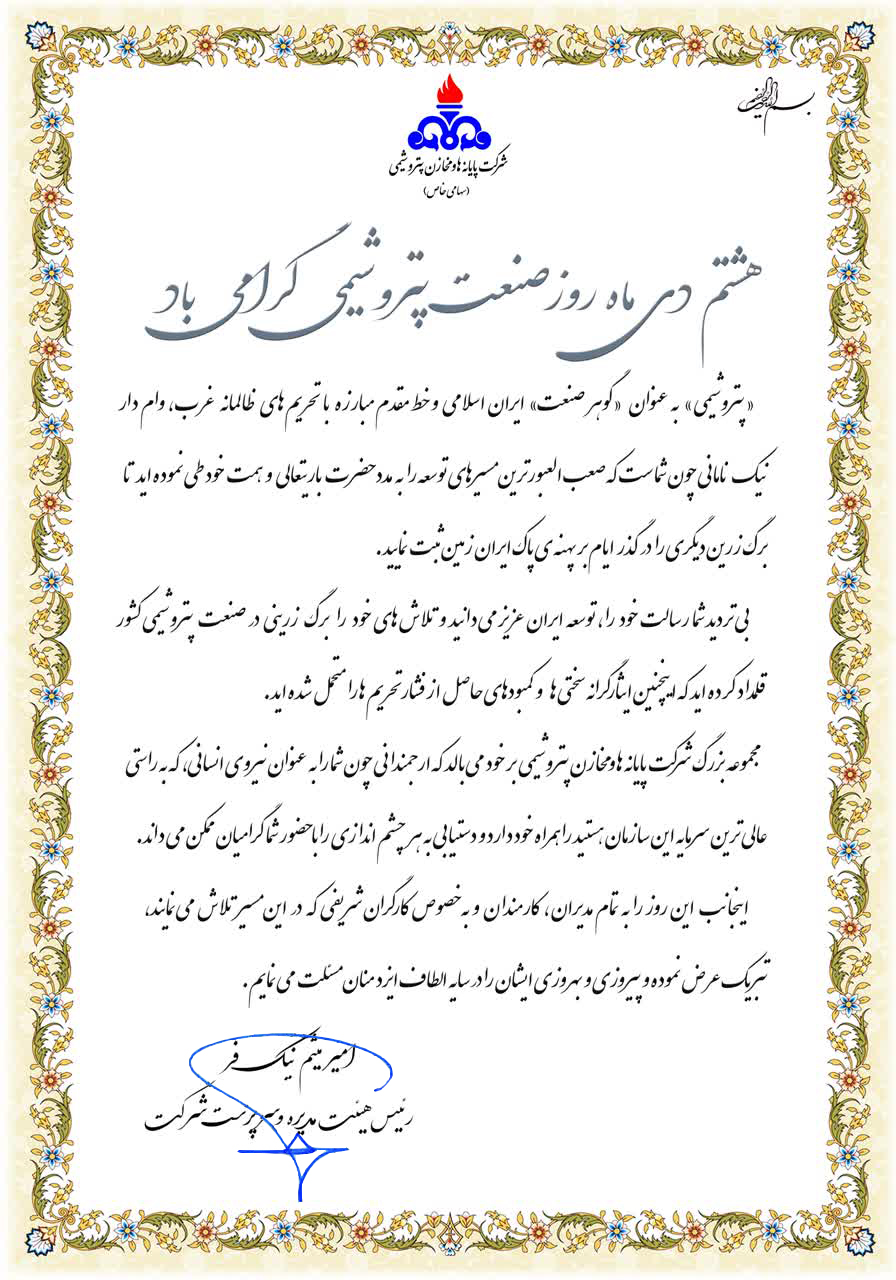 بسم الله الرحمن الرحیم
شرکت پایانه ها و مخازن پتروشیمی
(سهامی خاص)
هشتم دی ماه روز صنعت پتروشیمی گرامی باد
«پتروشیمی» به عنوان «گوهر صنعت» ایران اسلامی و خط مقدم مبارزه با تحریم های ظالمانه غرب، وام دار
نیک نامانی چون شماست که صعب العبورترین مسیرهای توسعه را به مدد حضرت باریتعالی و همت خود طی نموده اید تا
برگ زرین دیگری را در گذر ایام بر پهنه ی پاک ایران زمین ثبت نمایید.
بی تردید شما رسالت خود را، توسعه ایران عزیز می دانید و تلاش های خود را برگ زرینی در صنعت پتروشیمی کشور
قلمداد کرده اید که اینچنین ایثارگرانه سختی ها و کمبودهای حاصل از فشار تحریم ها را متحمل شده اید.
مجموعه بزرگ شرکت پایانه ها و مخازن پتروشیمی بر خود می بالد که ارجمندانی چون شما را به عنوان نیروی انسانی، که به راستی
عالی ترین سرمایه این سازمان هستید را همراه خود دارد و دستیابی به هر چشم اندازی را با حضور شما گرامیان ممکن می داند.
اینجانب این روز را به تمام مدیران، کارمندان و به خصوص کارگران شریفی که در این مسیر تلاش می نمایند،
تبریک عرض نموده و پیروزی و بهروزی ایشان را در سایه الطاف ایزد منان مسئلت می نمایم.
امیر میثم نیک فر
رئیس هیئت مدیره و سرپرست شرکت